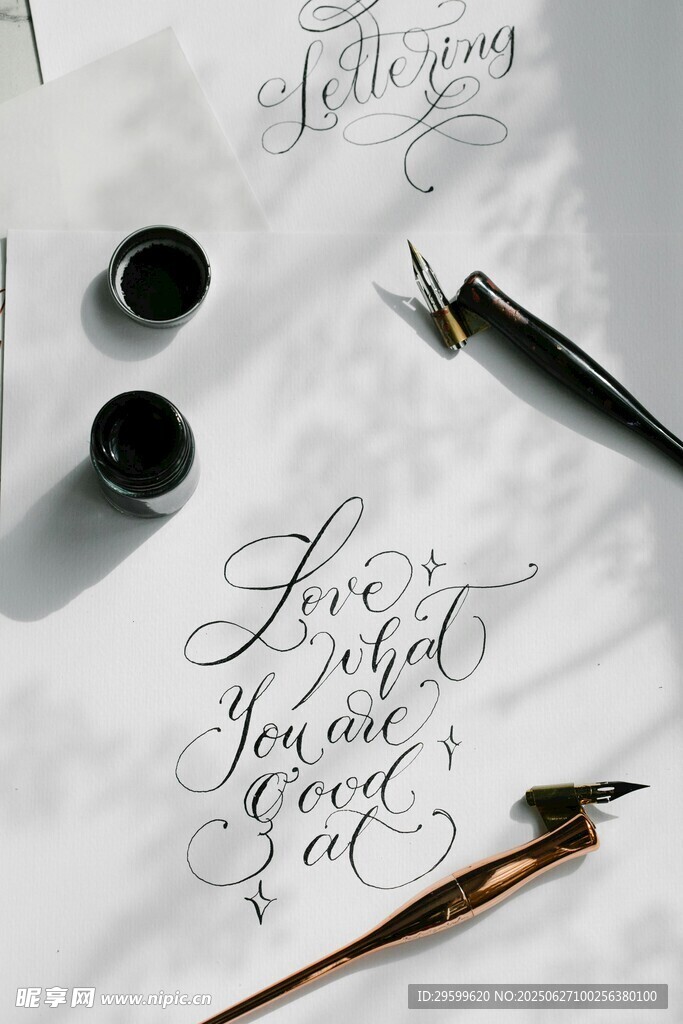 Lettering
Love
what
You are
Good
at
昵享网 www.nipic.cn
ID:29599620 NO:20250627100256380100